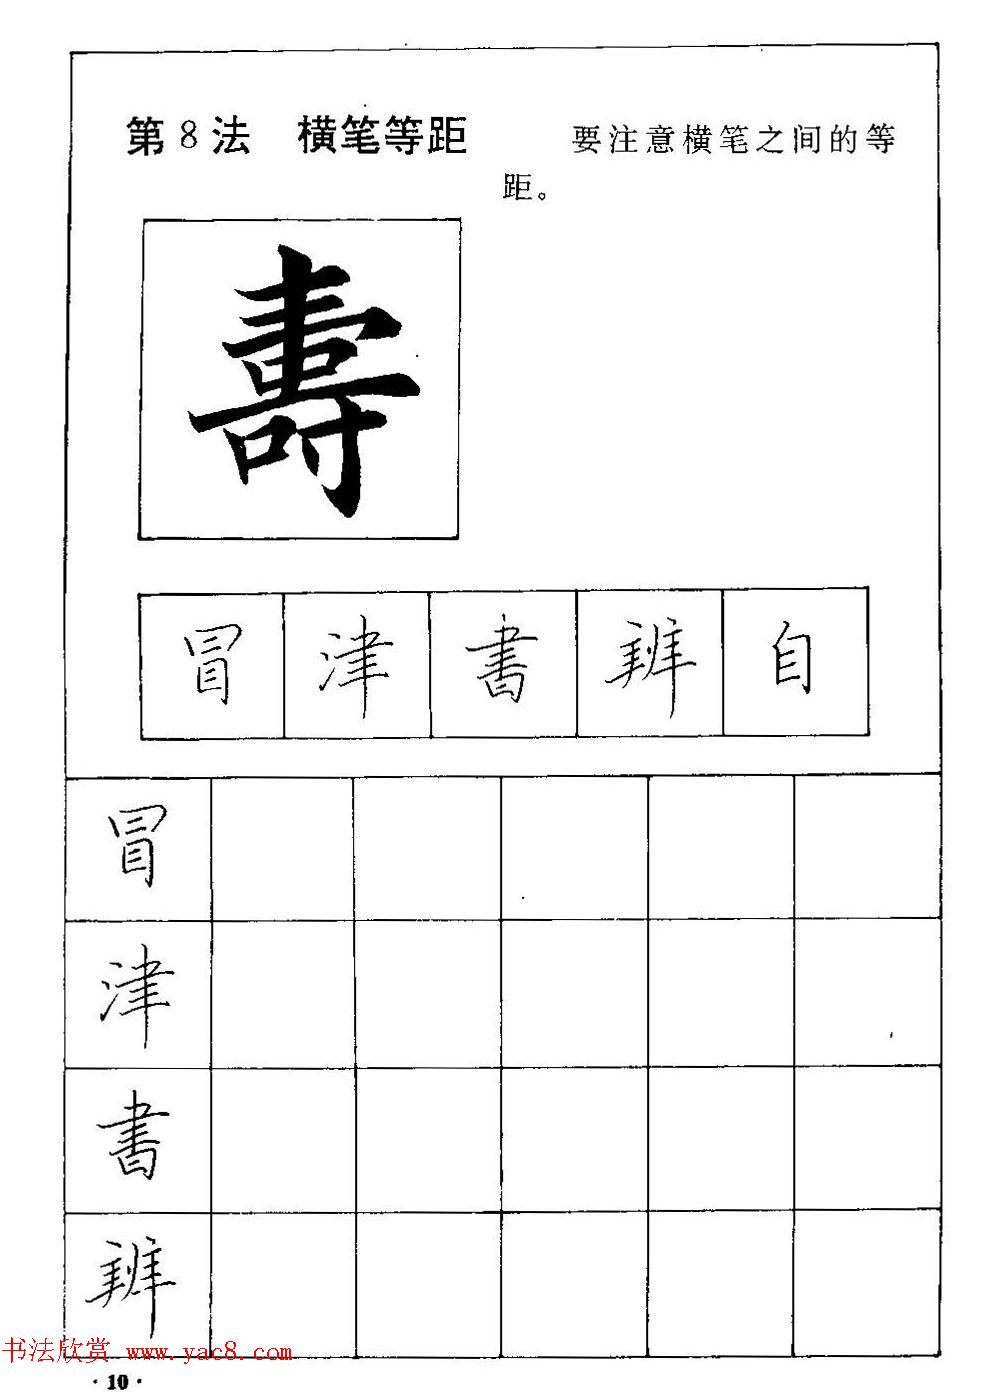 第8法 横笔等距 要注意横笔之间的等
距。
壽
冒 津 書 辨 自
冒
津
書
辨
书法欣赏 www.yac8.com
·10·